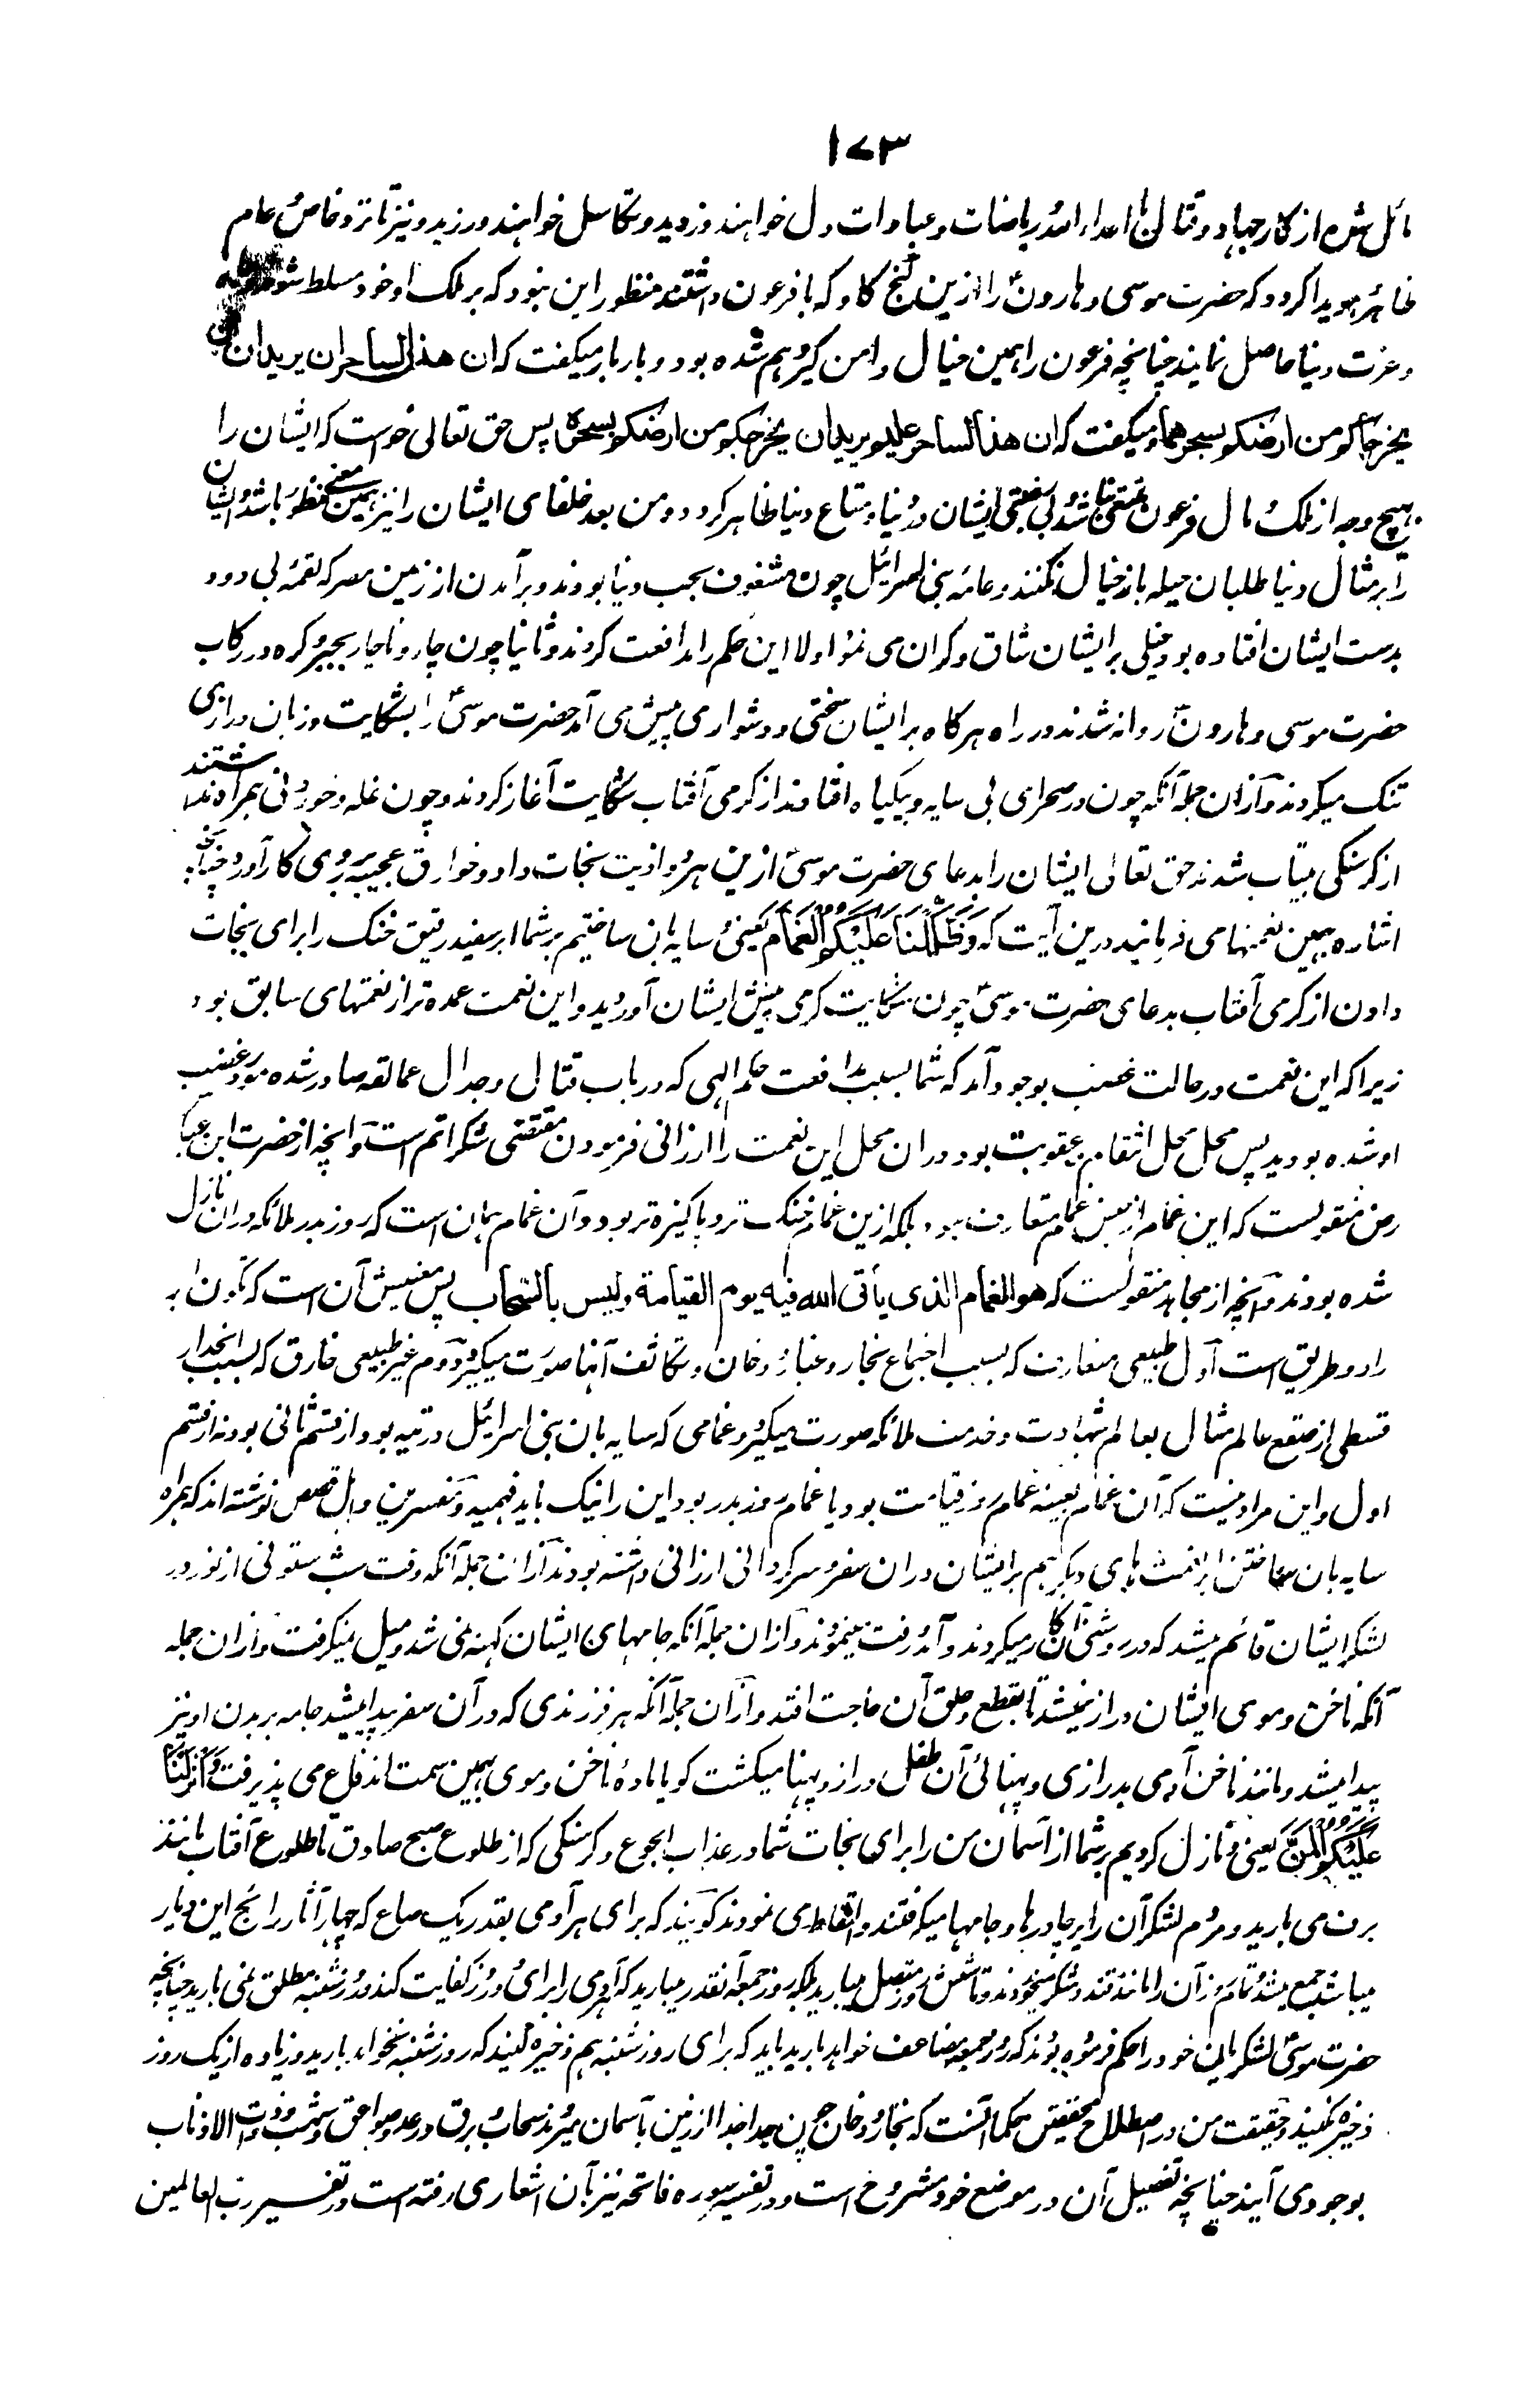 ۱۷۳
مائل شده از کار جهاد و قتال با اعداء الله و ریاضات و عبادات دل خواهند دزدید و تکاسل خواهند ورزید و نیز تا نزد خاص و عام
ظاهر و هویدا گردد که حضرت موسی و هارونؑ را ازین کنج کاو که با فرعون داشتند منظور این نبود که بر ملک او خود مسلط شوند
و عزت دنیا حاصل نمایند چنانچه فرعون را همین خیال دامن گیر وهم شده بود و بار بار میگفت که ان هذان لساحران یریدان ان
یخرجاکم من ارضکم بسحرهما و میگفت که ان هذا لساحر علیم یرید ان یخرجکم من ارضکم بسحره پس حق تعالی خواست که ایشان را
بهیچ وجه از ملک و مال فرعون منتفع نباشند و بی رغبتی ایشان در دنیا و متاع دنیا ظاهر گردد و من بعد خلفای ایشان را نیز همین معنی منظور باشد و ایشان
را بر مثال دنیا طلبان حیله باز خیال نکنند و عامه بنی اسرائیل چون مشغوف بحب دنیا بودند و برآمدن از زمین مصر که لقمه بی دود
بدست ایشان افتاده بود خیلی بر ایشان شاق و گران می نمود اولا این حکم را مدافعت کردند و ثانیا چون چار و ناچار بجبر و کره در رکاب
حضرت موسی و هارونؑ روانه شدند در راه هرگاه بر ایشان سختی و دشواری پیش می آمد حضرت موسیؑ را بشکایت و زبان درازی
تنگ میکردند و ازان جمله آنکه چون در صحرای بی سایه و بیگیاه افتادند از گرمی آفتاب شکایت آغاز کردند و چون غله و خوردنی همراه نداشتند
از گرسنگی بیتاب شدند حق تعالی ایشان را بدعای حضرت موسیؑ ازین هر دو اذیت نجات داد و خوارق عجیبه بر روی کار آورد چنانچه
اشاره بهمین نعمتها می فرمایند درین آیت که وَظَلَّلْنَا عَلَيْكُمُ الْغَمَامَ یعنی و سایه بان ساختیم بر شما ابر سفید رقیق خنک را برای نجات
دادن از گرمی آفتاب بدعای حضرت موسیؑ چون شکایت گرمی پیش ایشان آوردید و این نعمت عمده تر از نعمتهای سابق بود
زیرا که این نعمت در حالت غضب بوجود آمد که شما بسبب مدافعت حکم الهی که در باب قتال و جدال عمالقه صادر شده بود مورد غضب
او شده بودید پس محل محل انتقام و عقوبت بود دران محل این نعمت را ارزانی فرمودن مقتضی شکر اتم است و آنچه از حضرت ابن عباس
رض منقولست که این غمام از جنس غمام متعارف نبود بلکه ازین غمام خنک تر و پاکیزه تر بود و آن غمام همان است که روز بدر ملائکه دران نازل
شده بودند و آنچه از مجاهد منقولست که هو الغمام الذی یأتی الله فیه یوم القیامة و لیس بالسحاب پس معنیش آن است که تکون ابر
را دو طریق است اول طبیعی متعارف که بسبب اجتماع بخار و غبار و دخان و تکاثف آنها صورت میگیرد دوم غیر طبیعی خارق که بسبب انحدار
قسطی از صقع عالم مثال بعالم شهادت و خدمت ملائکه صورت میگیرد و غمامی که سایه بان بنی اسرائیل در تیه بود از قسم ثانی بود نه از قسم
اول و این مراد نیست که آن غمام بعینه غمام روز قیامت بود یا غمام روز بدر بود این را نیک باید فهمید و مفسرین و اهل قصص نوشته اند که همراه
سایه بان ساختن ابر نعمت های دیگر هم بر ایشان دران سفر و سرگردانی ارزانی داشته بودند ازان جمله آنکه وقت شب ستونی از نور در
لشکر ایشان قائم میشد که در روشنی آن کار میکردند و آمد و رفت مینمودند و ازان جمله آنکه جامهای ایشان کهنه نمی شد و میل نمیگرفت و ازان جمله
آنکه ناخن و موی ایشان دراز نمیشد تا بقطع و حلق آن حاجت افتد و ازان جمله آنکه هر فرزندی که در آن سفر پیدا میشد جامه بر بدن او نیز
پیدا میشد و مانند ناخن آدمی بدرازی و پهنائی آن طفل دراز و پهنا میگشت گویا ماده ناخن و موی بهمین سمت اندفاع می پذیرفت وَأَنْزَلْنَا
عَلَيْكُمُ الْمَنَّ یعنی و نازل کردیم بر شما از آسمان من را برای نجات شما در عذاب الجوع و گرسنگی که از طلوع صبح صادق تا طلوع آفتاب مانند
برف می بارید و مردم لشکر آن را بر چادرها و جامها میگرفتند و التقاط می نمودند گویند که برای هر آدمی بقدر یک صاع که چهار آثار رائج این دیار
میباشد جمع میشد و تمام روز آن را مانند قند و شکر میخوردند و تا شش روز متصل میبارید بلکه روز جمعه آنقدر میبارید که آدمی را برای دو روز کفایت کند و روز شنبه مطلق نمی بارید چنانچه
حضرت موسیؑ لشکریان خود را حکم فرموده بودند که روز جمعه مضاعف خواهد بارید باید که برای روز شنبه هم ذخیره کنید که روز شنبه نخواهد بارید و زیاده از یک روز
ذخیره نکنید و حقیقت من در اصطلاح محققین حکما آنست که بخار و دخان چون جدا جدا از زمین بآسمان میروند سحاب و برق و رعد و صواعق و شهب و ذوات الاذناب
بوجود می آیند چنانچه تفصیل آن در موضع خود مشروح است و در تفسیر سوره فاتحه نیز بآن اشعاری رفته است در تفسیر رب العالمین